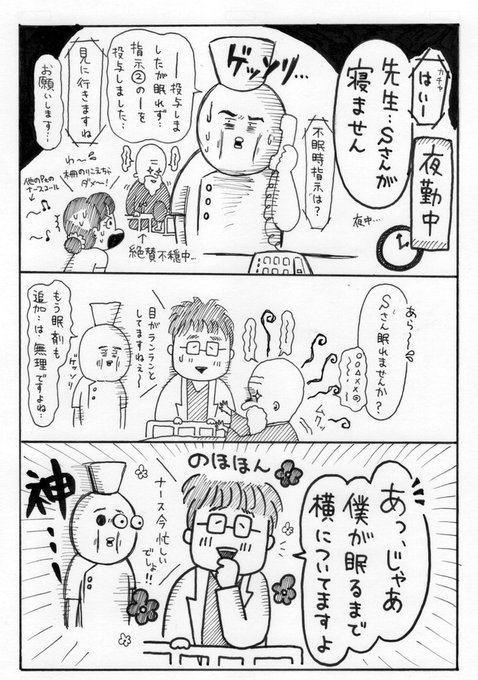 夜勤中
ガチャ
はいー
先生…Sさんが
寝ません
夜中…
不眠時指示は?
ゲッソリ…
ー投与しま
したが眠れず…
指示②のーを
投与しました…
見に行きますね
お願いします…
絶賛不穏中…
わ〜
柵のりこえちゃ
ダメー!
他のPtの
ナースコール
あら〜
Sさん眠れませんか?
○○△××◎
ムクッ
目がランランと
してますねぇ〜
もう眠剤も
追加は無理ですよね…
ゲッソリ
のほほん
あっ、じゃあ
僕が眠るまで
横についてますよ
ナース今忙しい
でしょ!!
神…